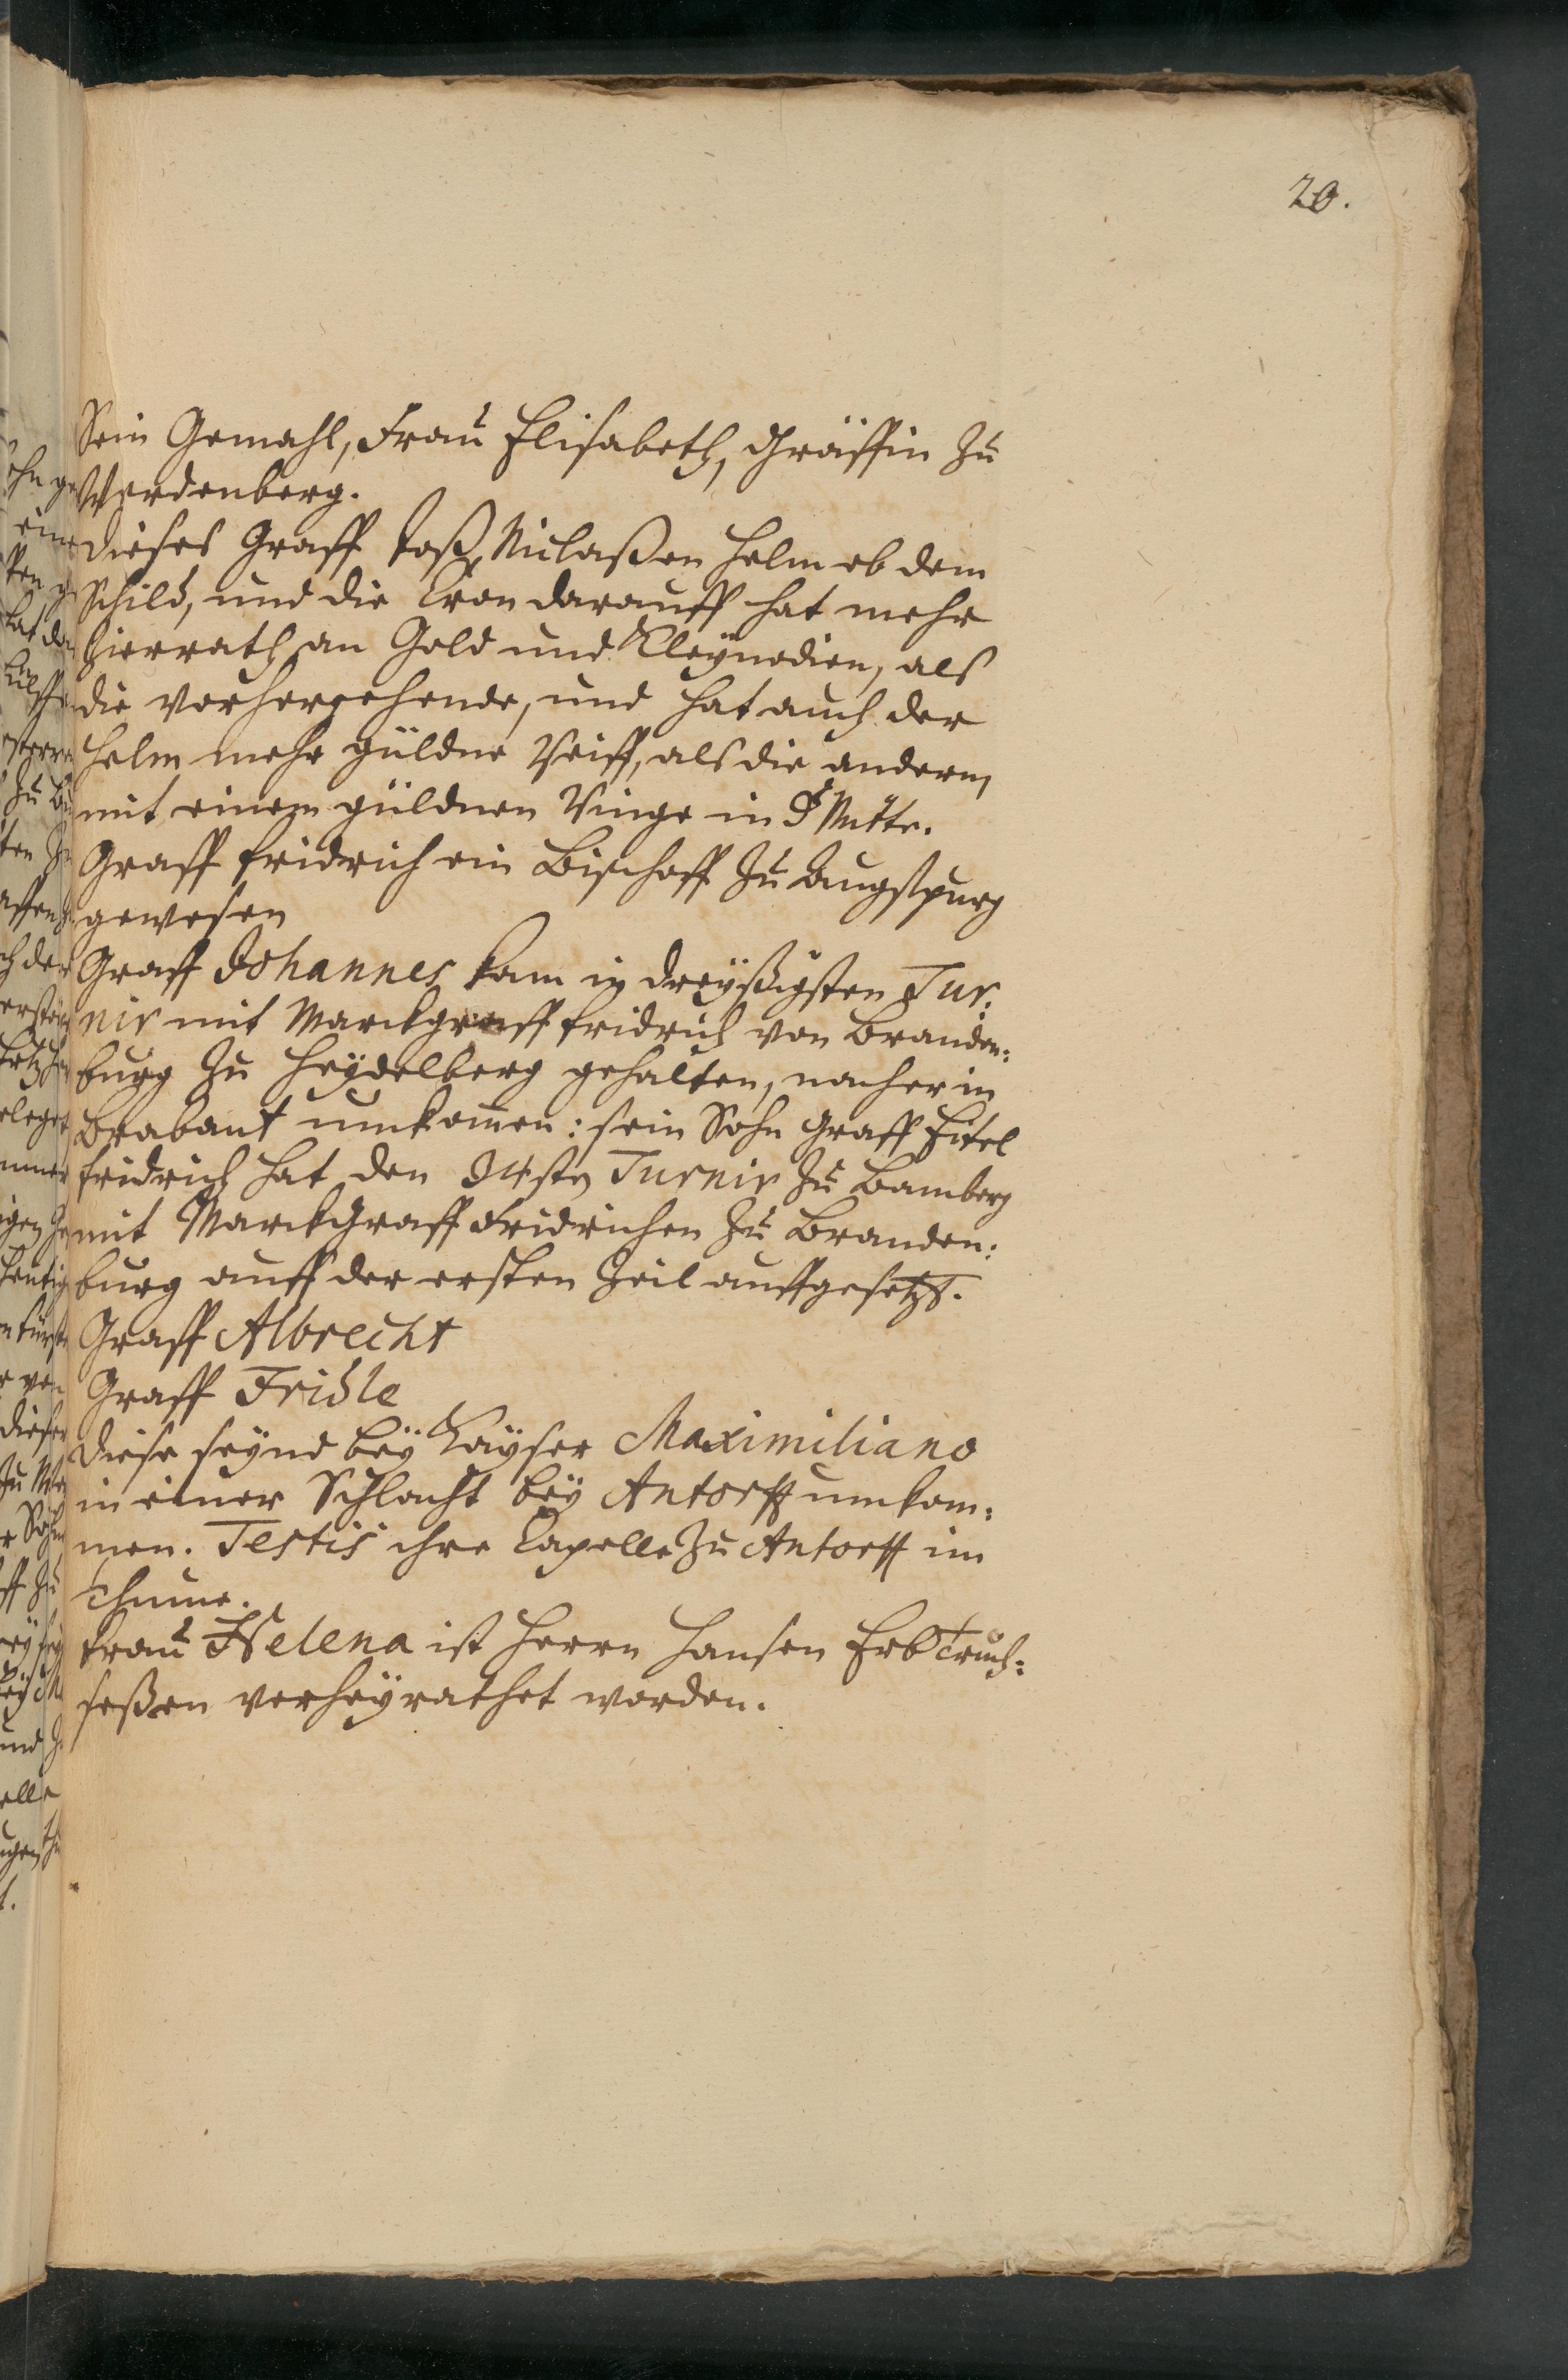 20.
Sein Gemahl, Frau Elisabeth, Gräffin zu
Werdenberg.
Dieses Graff Joß Niclaßen Helm ob dem
Schild, und die Cron darauff hat mehr
Zierrath an Gold und Kleynodien, als
die vorhergehende, und hat auch der
Helm mehr güldne Reiff, als die andern,
mit einem güldnen Ringe in d' Mitte.
Graff Fridrich ein Bischoff zu Augspurg
gewesen
Graff Johannes kam in dreyßigsten Tur:
nir mit Marckgraff Fridrich von Branden:
burg zu Heydelberg gehalten, nacher in
Brabant umkom̄en: sein Sohn Graff Eitel
Fridrich hat den 34sten Turnir zu Bamberg
mit Marckgraff Fridrichen zu Branden:
burg auff der ersten Zeil auffgesetzt.
Graff Albrecht
Graff Fridle
Diese seynd bey Kayser Maximiliano
in einer Schlacht bey Antorff umkom:
men. Testis ihre Capelle zu Antorff im
Thume.
Frau Helena ist Herrn Hansen ErbTruch:
seßen verheyrathet worden.